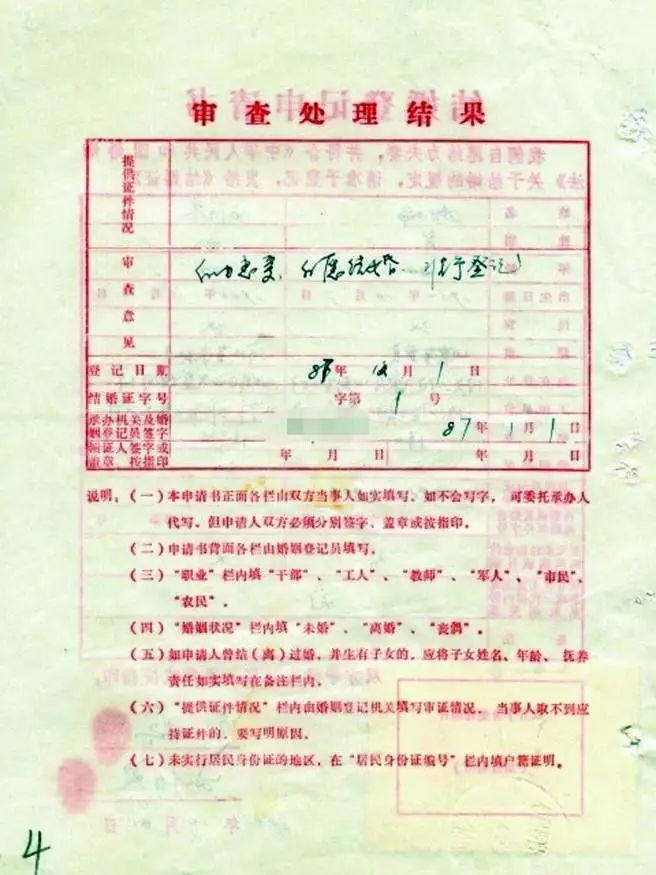 审查处理结果
提供证件情况
审查意见
自愿结婚 准予登记
登记日期
年 月 1 日
结婚证字号
字第 1 号
承办机关及婚姻登记员签字
87年 1月 1日
领证人签字或盖章、按指印
年 月 日
说明：（一）本申请书正面各栏由双方当事人如实填写。如不会写字，可委托承办人
代写。但申请人双方必须分别签字、盖章或按指印。
（二）申请书背面各栏由婚姻登记员填写。
（三）“职业”栏内填“干部”、“工人”、“教师”、“军人”、“市民”、
“农民”。
（四）“婚姻状况”栏内填“未婚”、“离婚”、“丧偶”。
（五）如申请人曾结（离）过婚，并生有子女的，应将子女姓名、年龄、抚养
责任如实填写在备注栏内。
（六）“提供证件情况”栏内由婚姻登记机关填写审证情况。当事人取不到应
持证件的，要写明原因。
（七）未实行居民身份证的地区，在“居民身份证编号”栏内填户籍证明。
4